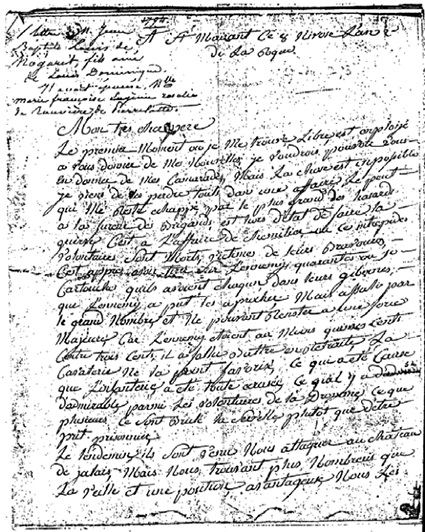 1794
Lettre de M. Jean
Baptiste Louis de
Nogaret, fils ainé
de Louis Dominique
Il avait épousé Mlle
marie françoise eugénie rosalie
de
A Ce 8 Nivose L'an 2
de La
Mon tres cher pere
Le premier Moment ou je Me trouve Libre est employé
a vous donner de Mes Nouvelles, je voudrois pouvoir vous
en donner de Mes Camarades, Mais La chose est impossible
je viens de les perdre touts dans une affaire Le peut
qui Me reste echappé par le plus grand des hazards
a la fureur des Brigands est hors d'etat de faire la
guerre C'est a L'affaire de Chemillé ou Ces intrepides
volontaires Sont Morts victimes de leurs Bravoures,
C'est apres avoir tiré Sur L'ennemy quarante ou
Cartouches quils avoient chaqun dans leurs gibernes,
que L'ennemy a peut les aprocher Mais assaillis par
le grand Nombre et Ne pouvant resister a une force
Majeure Car L'ennemy etoient au Moins quinze Cents
Contre trois Cents, il a fallu Battre en retraite La
Cavalerie Ne la point favorisé, Ce qui a eté Cause
que L'infanterie a eté toute ecrasée Ce qu'il y a
d'admirable parmi Les volontaires de la Drome, C'est que
plusieurs Ce Sont Brulé la Cervelle plutot que d'etre
prit prisonnier.
Le Lendemain ils Sont venu Nous attaquer au château
de jalais, Mais Nous trouvant plus Nombreux que
La veille et une position avantageux Nous Les